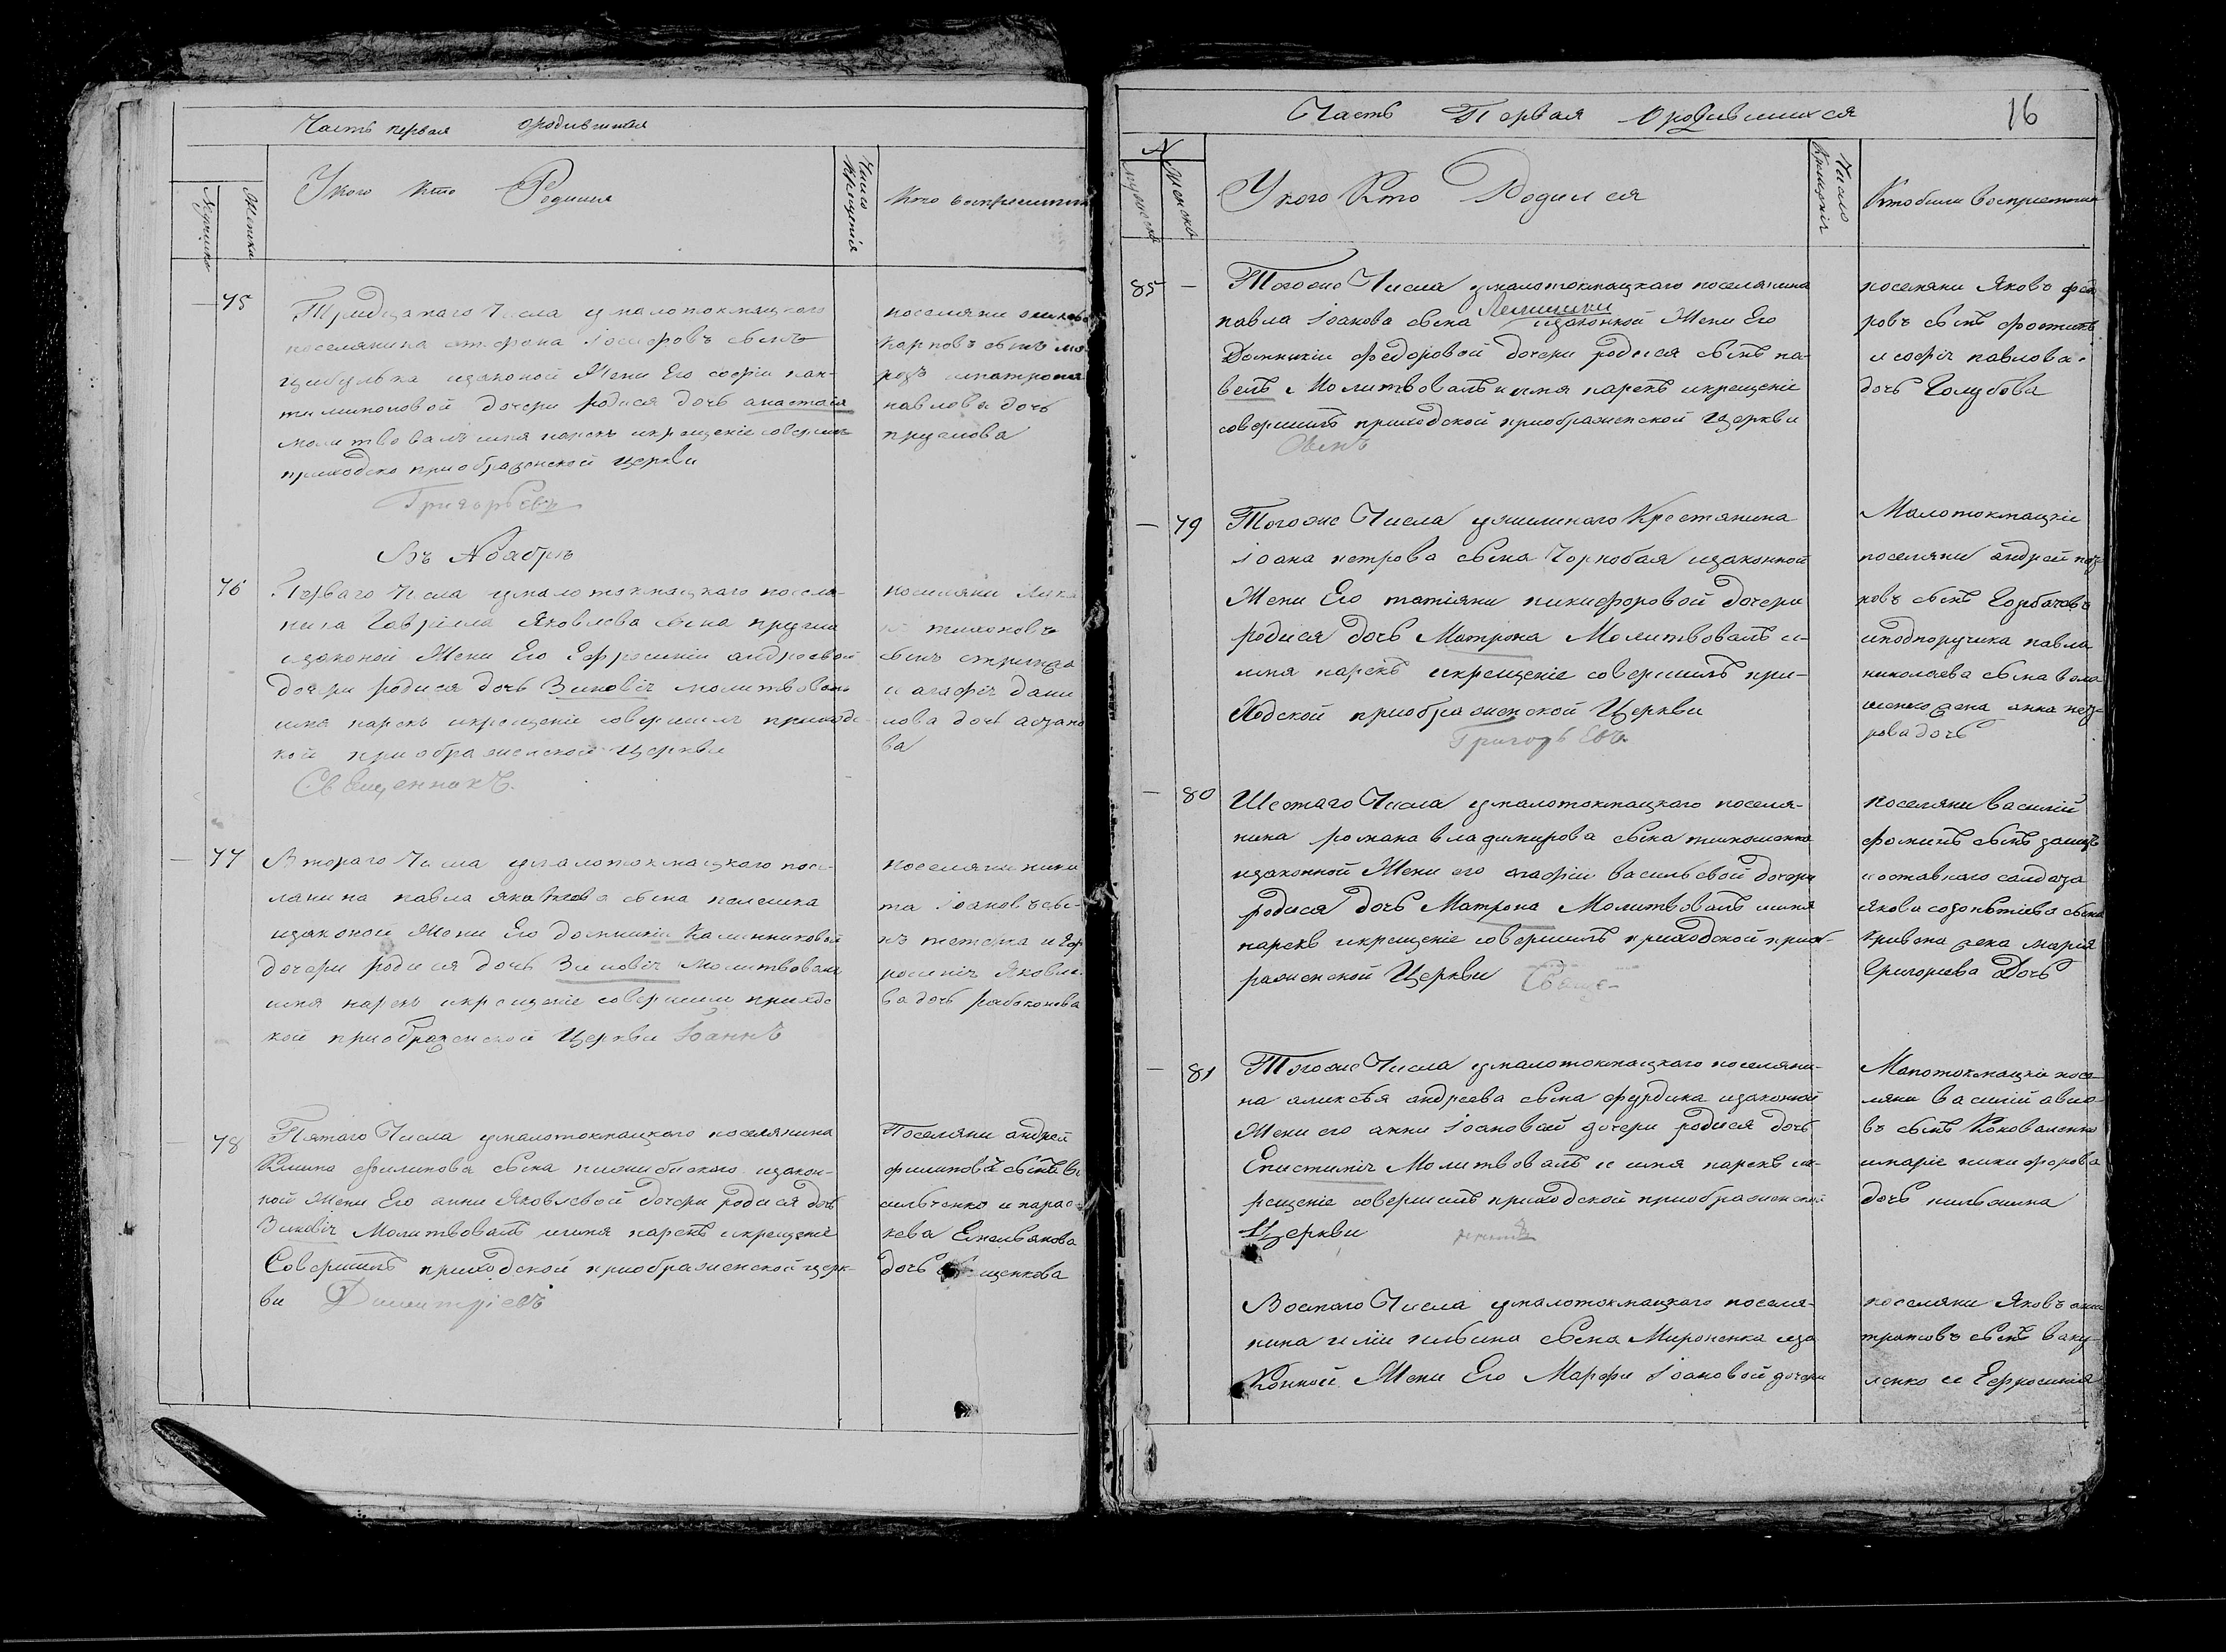 Часть первая ородившихся
Мужескъ
Женска
Укого кто Родился
Число Крещенія
Кто восприемники
75
Тридцатаго Числа умалотокмацкого
поселянина стефана Іосифовъ сынъ
цыбулька изаконой Жени Его софіи пан-
тилимоновой дочери родися дочь анастасія
молитвовалъ имя нарекъ икрещеніе совершилъ
приходско приображенской церкви
Григорьевъ
поселяни
карповъ сынъ мо-
розъ иматрона
павлова дочь
пруглова
Въ Ноабрѣ
76
Перваго Числа умалотокмацкаго поселя-
нина Гавріила Яковлева сына
изаконой Жени Его Ефросиніи андреевой
дочери родися дочь Зиновіч молитвовалъ
имя нарекъ икрещеніе совершилъ приходс-
кой приображенской церкви
Священникъ.
поселяни
тихоновъ
сынъ
и агафіч дани
лова дочь
ва
77
Втораго Числа умалотокмацкаго посе-
лянина павла яковлева сына пелешка
изаконой Жени Его домникіи Калинниковой
дочери родися дочь Зиновіч молитвовалъ
имя нарекъ икрещеніе совершилъ приходс
кой приображенской Церкви Іоаннъ
поселяни ники
та Іоановъ сы-
нъ тетерка и Еф
росиніч Яковле
ва дочь рабоконова
78
Пятаго Числа умалотокмацкаго поселянина
Климо филипова сына изакон-
ной Жени Его анни Яковлевой дочери родися дочь
Зиновіч Молитвовалъ иимя нарекъ икрещеніе
Совершилъ приходской приображенской церк-
ви Димитріевъ
Поселяни андрей
филиповъ сынъ ва
сильченко и парас-
кева Емельянова
дочь
Часть Первая Ородившихся
16
Мужеска
Женска
Укого Кто Родился
Число Крещенія
Кто били Восприемники
85 —
Тогоже Числа умалотокмацкого поселянина
Лемишки
павла Іоакова сына изаконной Жени Его
Домникіи Федоровой дочери родися сынъ па-
велъ Молитвовалъ иимя нарекъ икрещеніе
совершилъ приходской приображенской Церкви
Свенъ
поселяни Яковъ федо
ровъ сынъ
и софіч павлова
дочь Голубова
— 79
Тогоже Числа Крестянина
Іоана петрова сына Чорнобая изаконной
Жени Его татіяни никифоровой дочери
родися дочь Матрона Молитвовалъ и-
имя нарекъ икрещеніе совершилъ при-
Ходской приображенской Церкви
Григорьевъ
Малотокмацкіе
поселяни андрей
ковъ сынъ Горбачовъ
иподпоручика павла
николаева сына вола
шенко жена анна пет-
рова дочь
— 80
Шестаго Числа умалотокмацкаго поселя-
нина романа владимирова сына тимошенка
изаконной Жени его агафіи васильевой дочери
родися дочь Матрона Молитвовалъ иимя
нарекъ икрещеніе совершилъ приходской приоб-
раженской Церкви Свяще-
поселяни василій
фоминъ сынъ заицъ
иоставнаго салдата
Якова сына
Кривона жена марія
Григориева Дочь
— 81
Тогоже Числа умалотокмацкаго поселяни-
на аликсѣя андреева сына фурдика изаконной
Жени его анни Іоановой дочери родися дочь
Епистиміч Молитвовалъ и имя нарекъ ик-
рещеніе совершилъ приходской приображенской
Церкви
Малотокмацкіе посе
ляни василій
въ сынъ Коноваленко
имаріє никифорова
дочь
Восмаго Числа умалотокмацкаго поселя-
нина иліи ильина сына Мироненка иза
Конной Жени Его Марфи Іоановой дочери
поселяни Яковъ
сынъ ваку-
ленко и Ефросинія